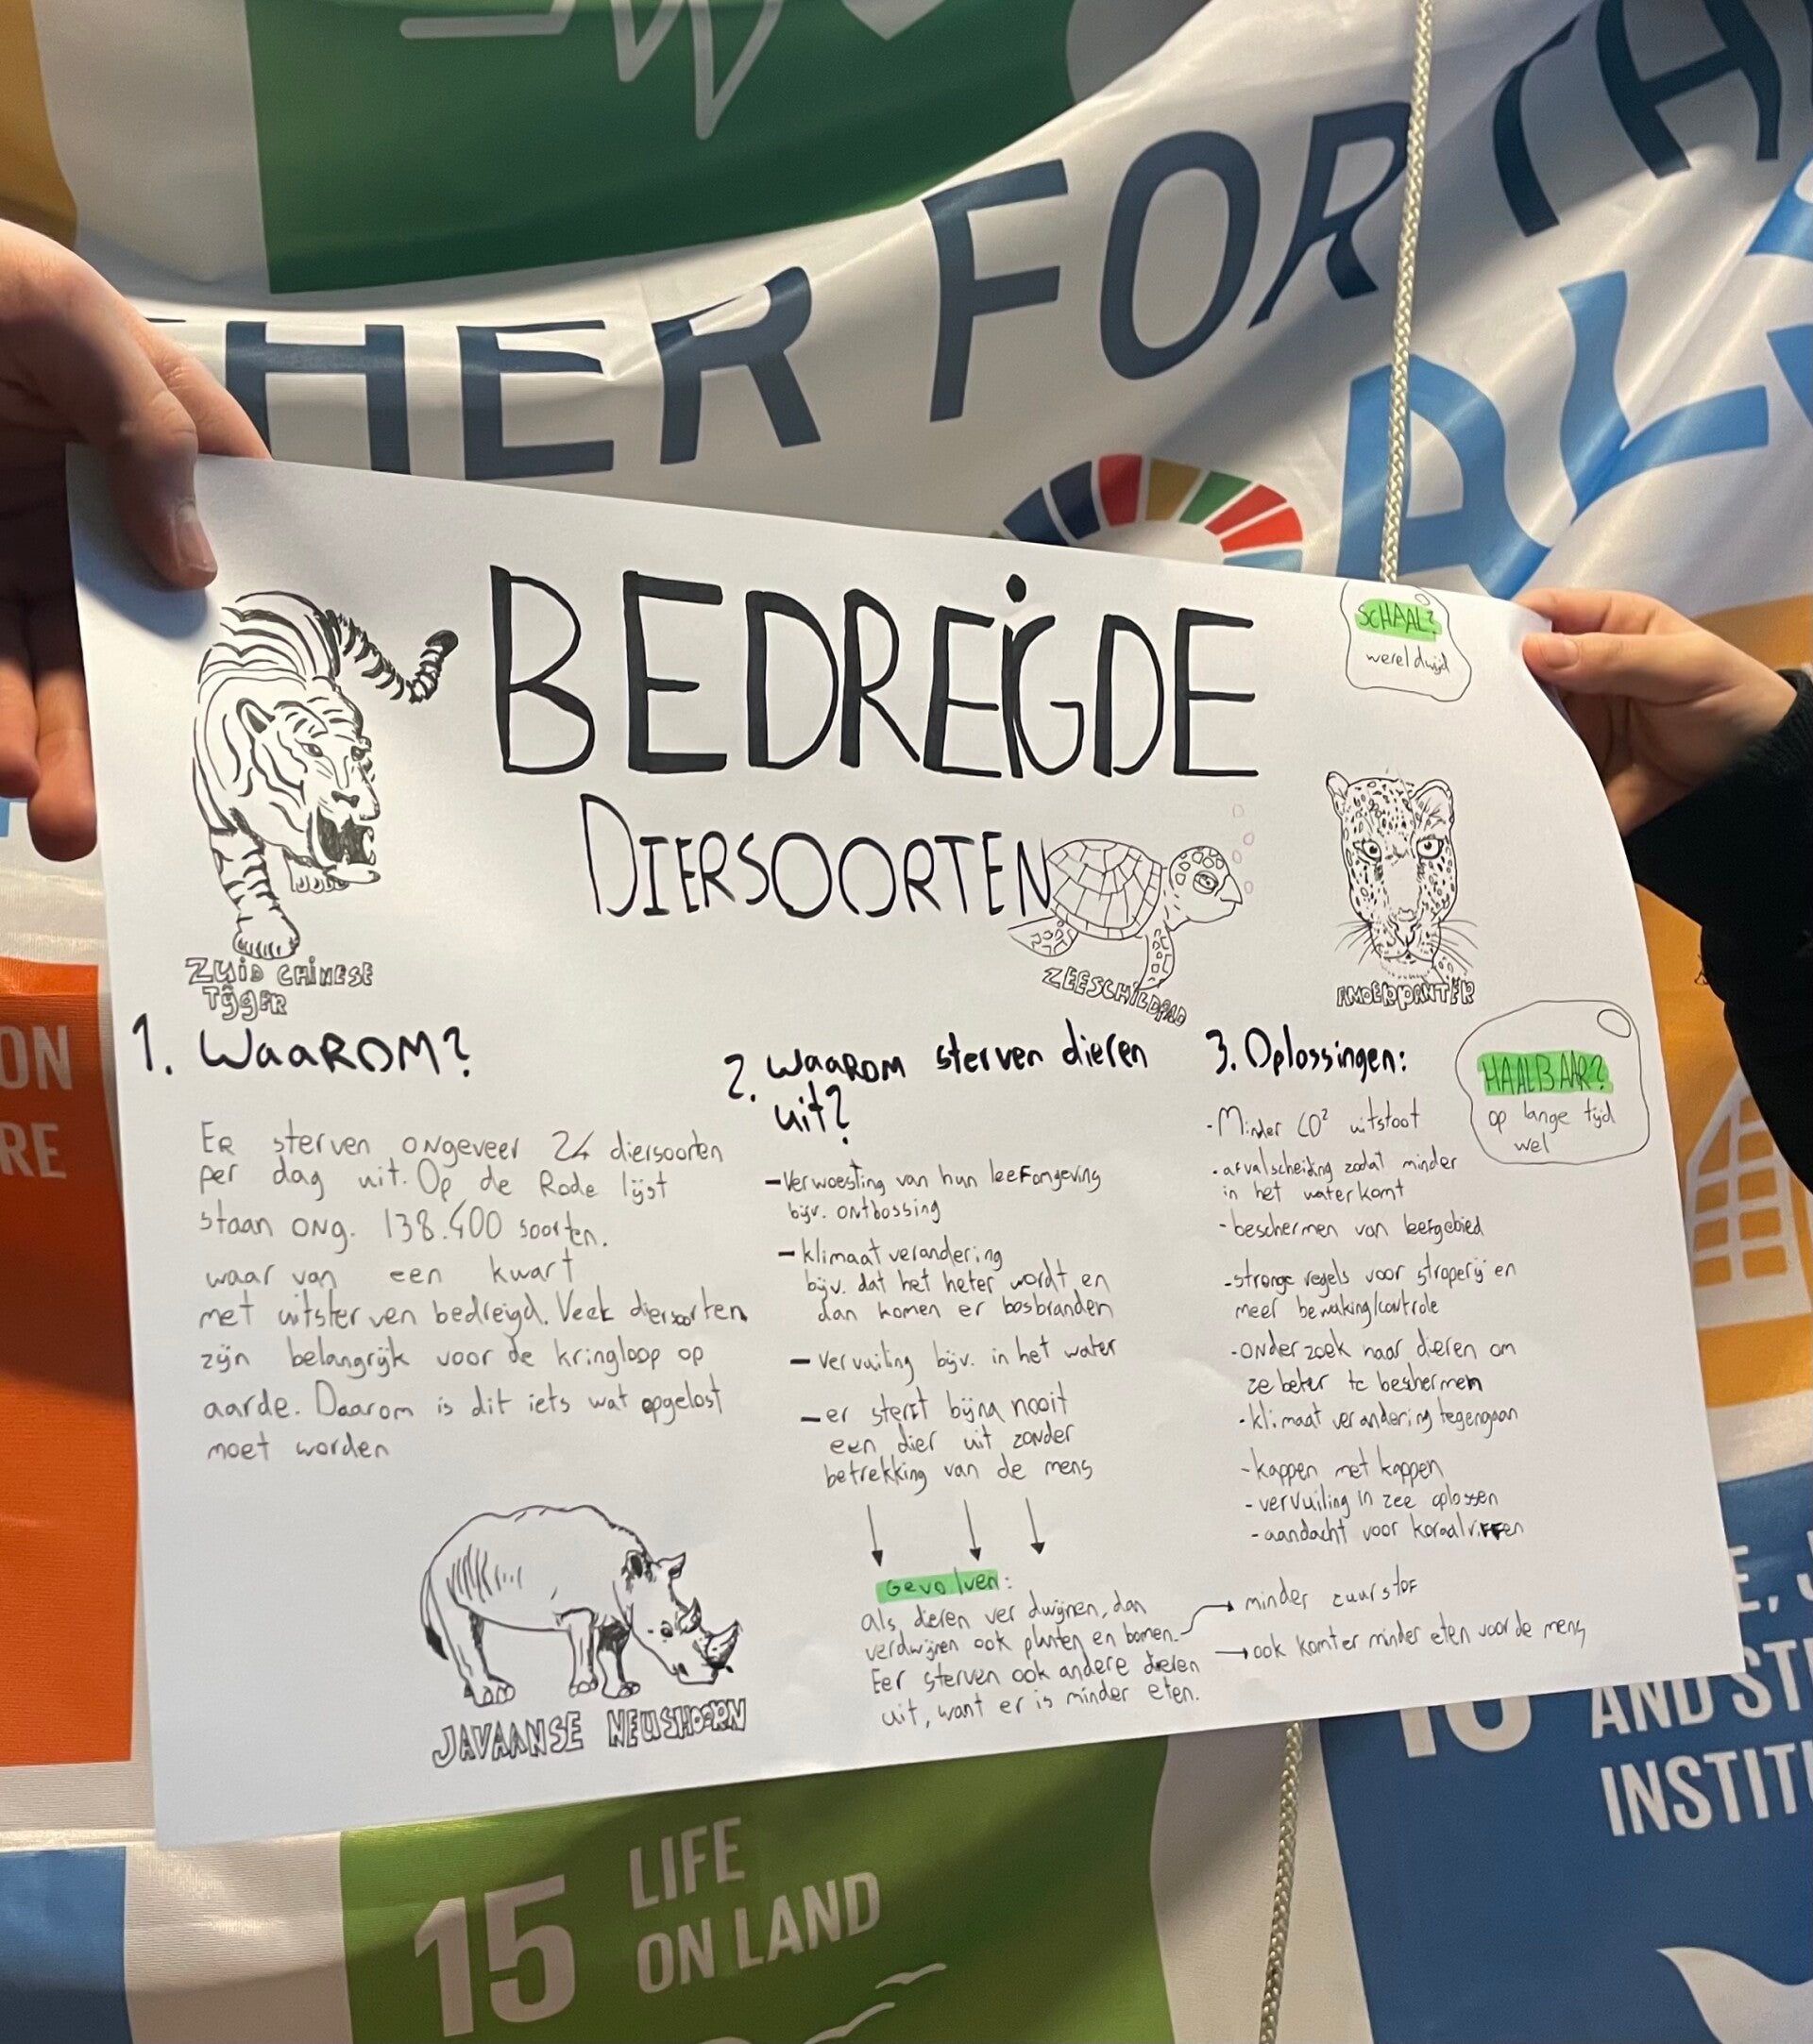 HER FOR TH
ALS
BEDREIGDE
DIERSOORTEN
SCHAAL?
wereldwijd
ZUID CHINESE
TIJGER
ZEESCHILDPAD
AMOERPANTER
1. WAAROM?
ER sterven ongeveer 24 diersoorten
per dag uit. Op de Rode lijst
staan ong. 138.400 soorten.
waar van een kwart
met uitster ven bedreigd. Veel diersoorten
zijn belangrijk voor de kringloop op
aarde. Daarom is dit iets wat opgelost
moet worden
JAVAANSE NEUSHOORN
2. WAAROM sterven dieren
uit?
- Verwoesting van hun leefomgeving
bijv. ontbossing
- klimaat verandering
bijv. dat het heter wordt en
dan komen er bosbranden
- vervuiling bijv. in het water
- er sterft bijna nooit
een dier uit zonder
betrekking van de mens
Gevolven:
als dieren ver dwijnen, dan
verdwijnen ook planten en bomen.
Eer sterven ook andere dieren
uit, want er is minder eten.
minder zuurstof
ook komt er minder eten voor de mens
3. Oplossingen:
- Minder CO² uitstoot
- afvalscheiding zodat minder
in het water komt
- beschermen van leefgebied
- strenge regels voor stroperij en
meer bewaking/controle
- onder zoek naar dieren om
ze beter te beschermen
- klimaat verandering tegengaan
- kappen met kappen
- vervuiling in zee oplossen
- aandacht voor koraalriffen
HAALBAAR?
op lange tijd
wel
ON
RE
15 LIFE
ON LAND
16
E, J
AND ST
INSTIT